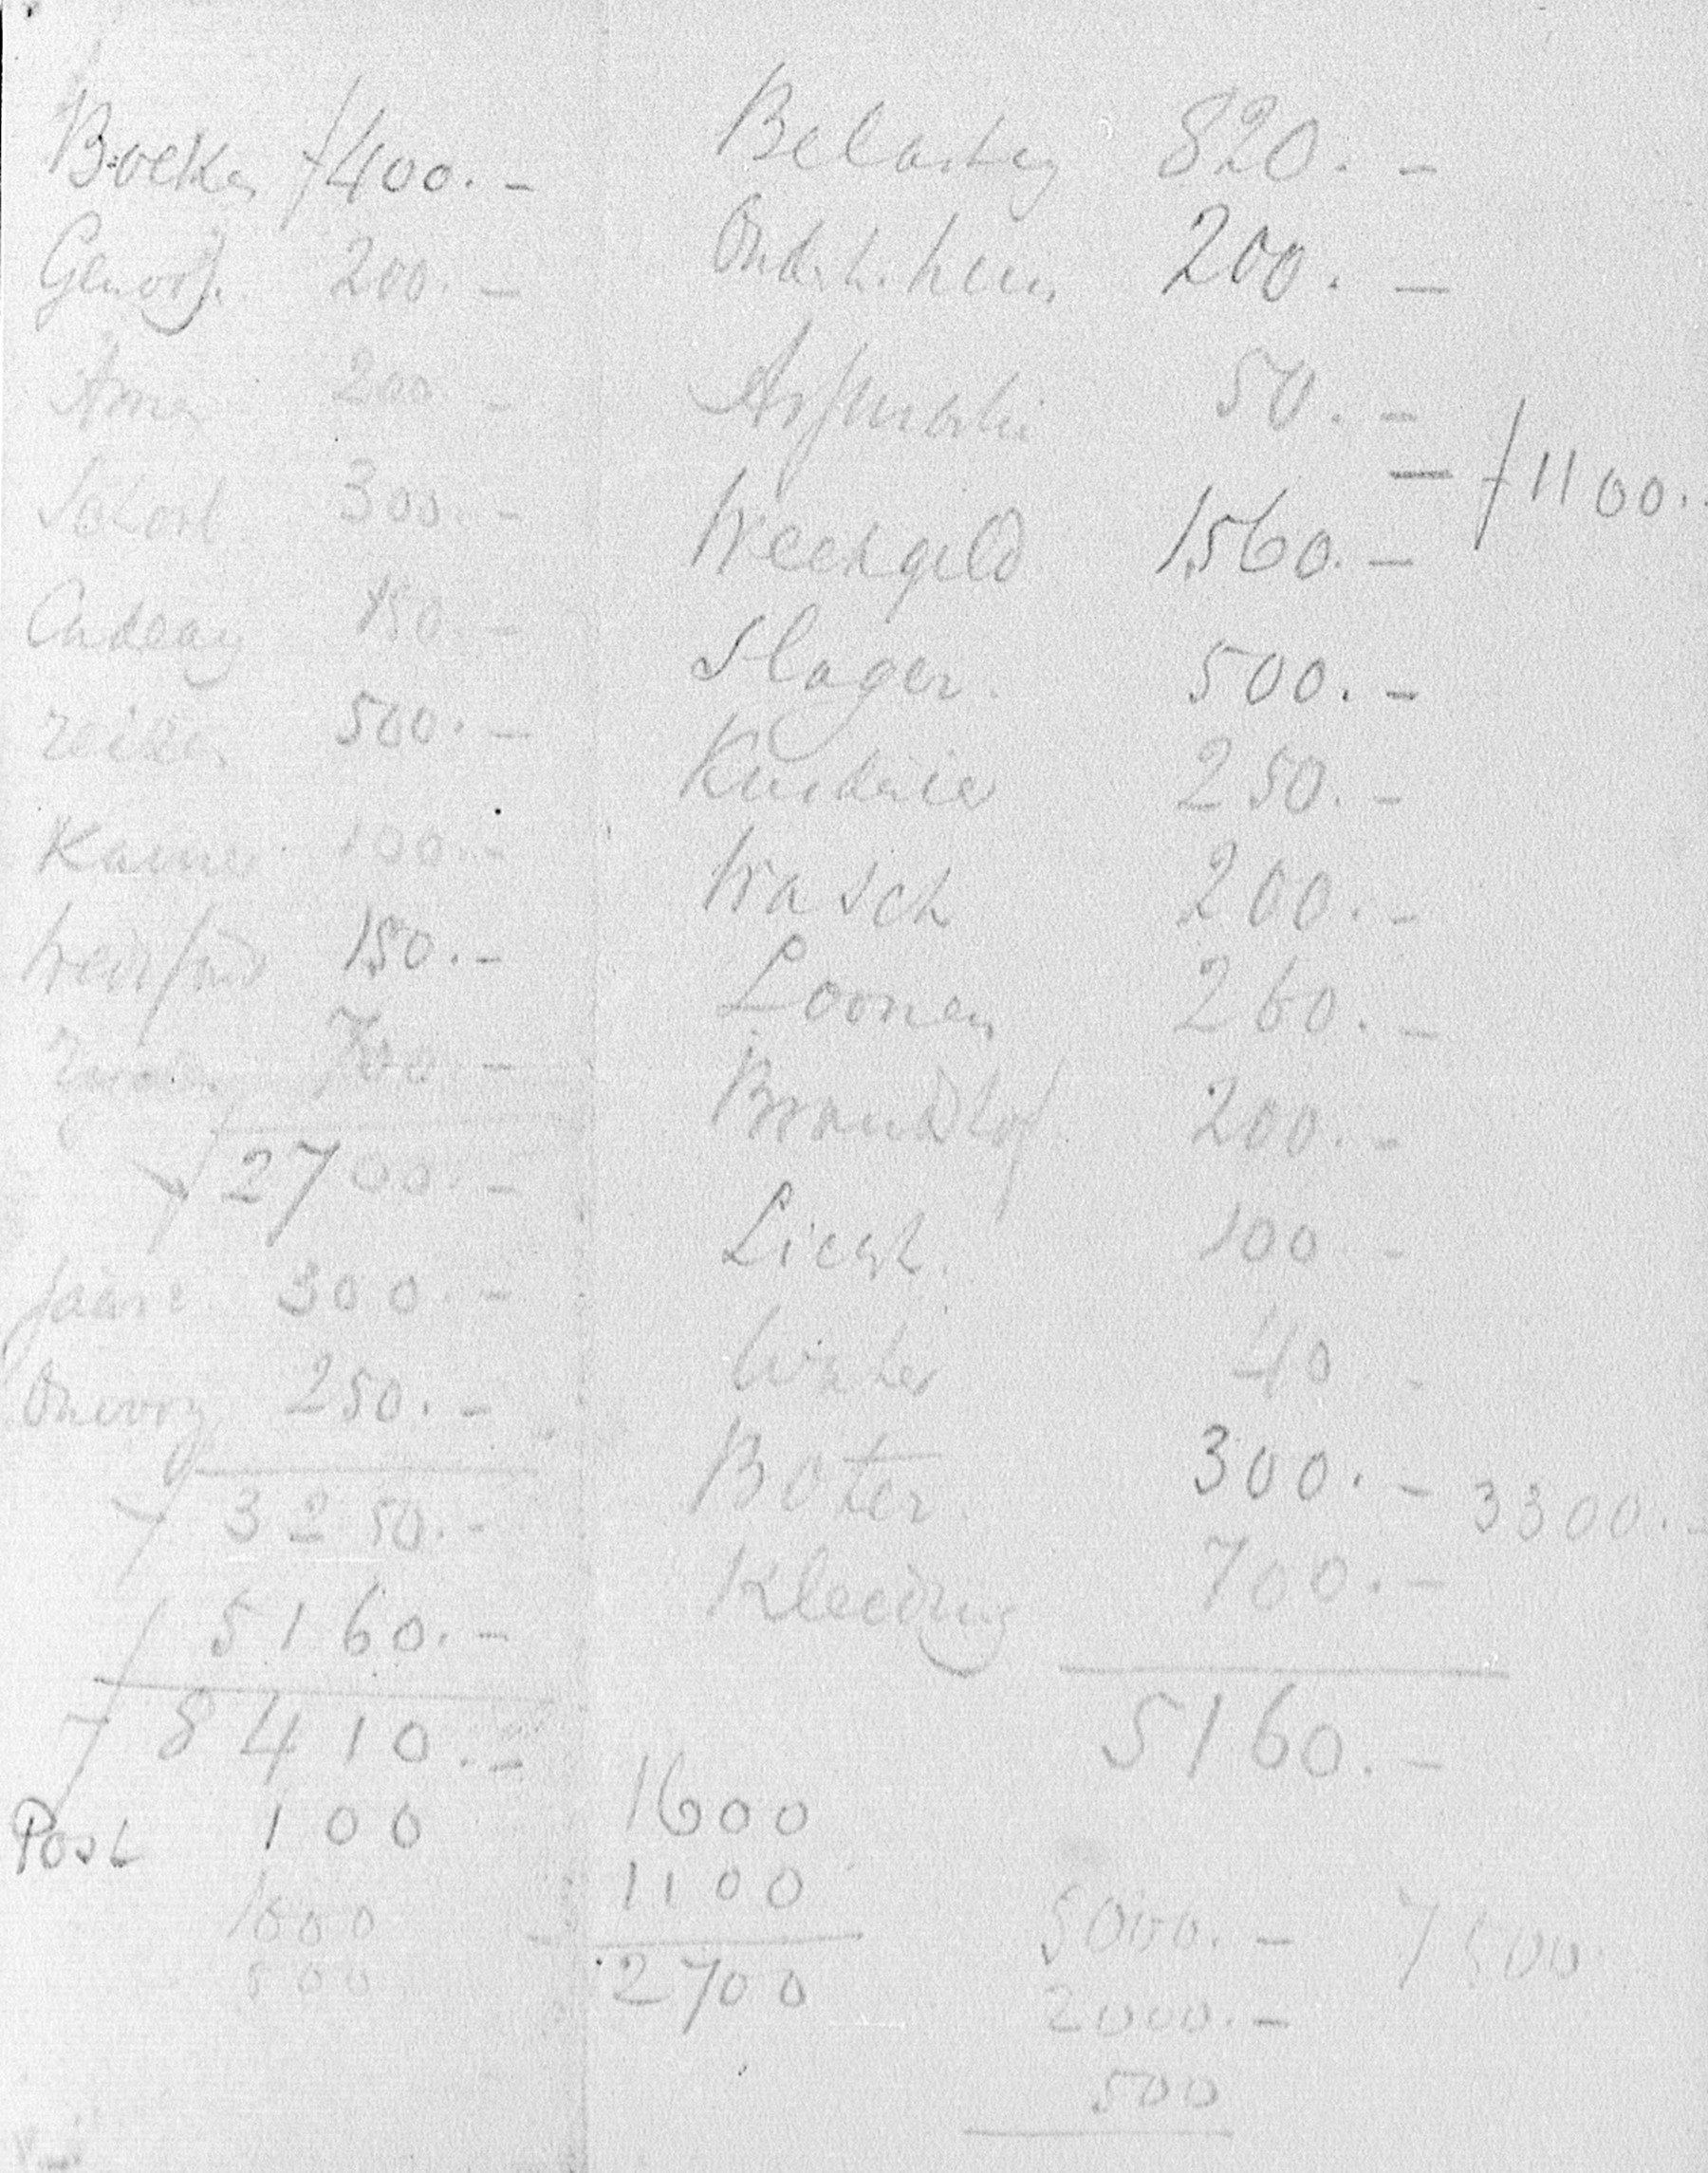 Boeken f 400.-
Genootsch. 200.-
Armen 200.-
School 300.-
Cadeaux 150.-
reizen 500.-
Kamer 100.-
150.-
700.-
f 2700.-
300.-
Onvoorz 250.-
f 3250.-
f 5160.-
f 8410.-
Post 100
1000
500
Belasting 820.-
Onderh. huis 200.-
Assurantie 50.-
= f 1100.-
Weekgeld 1560.-
Slager. 500.-
Kruidenier 250.-
Wasch 200.-
Loonen 260.-
Brandstof 200.-
Licht. 100 -
Water 40 -
Boter. 300.- 3300.-
Kleeding 700.-
5160.-
1600
1100
2700
5000.- 7500
2000.-
500